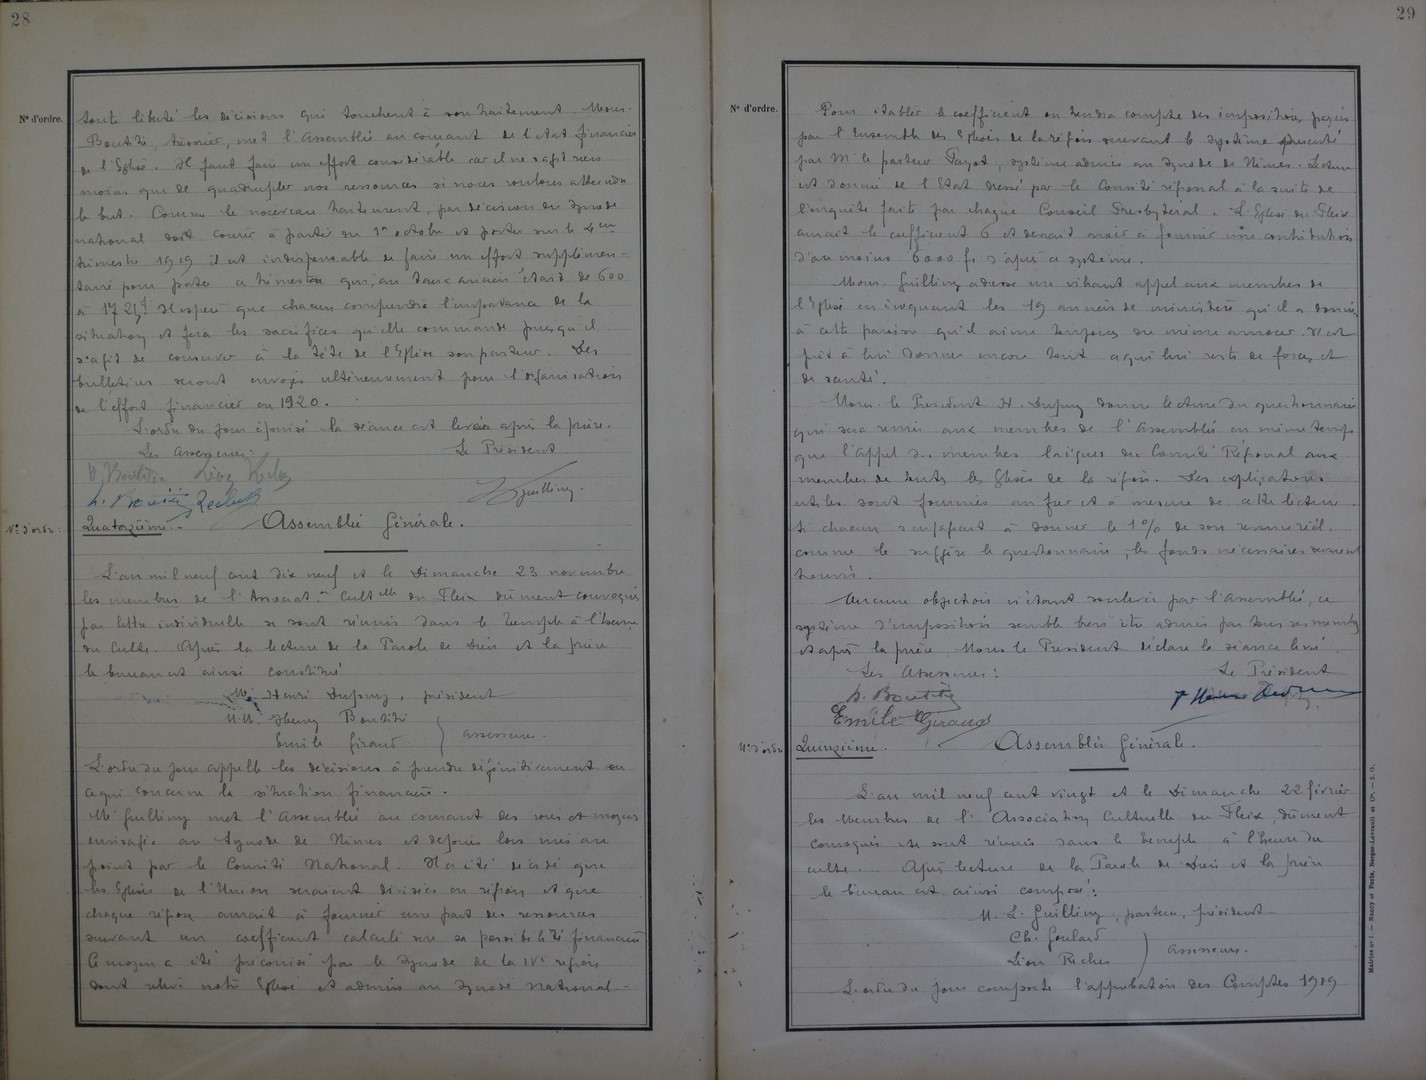 28
N° d'ordre.
toute liberté les décisions qui touchent à son traitement. Mons.
Boutité, trésorier, met l'Assemblée au courant de l'état financier
de l'Eglise. Il faut faire un effort considérable car il ne s'agit rien
moins que de quadrupler nos ressources si nous voulons atteindre
le but. Comme le nouveau traitement, par décision du Synode
national doit courir à partir du 1er octobre et porter sur le 4me
trimestre 1919 il est indispensable de faire un effort supplémen-
taire pour porter ce trimestre qui, au taux ancien était de 600
à 1725f. Il espère que chacun comprendra l'importance de la
situation et fera les sacrifices qu'elle commande puisqu'il
s'agit de conserver à la tête de l'Eglise son pasteur. Des
bulletins seront envoyés ultérieurement pour l'organisation
de l'effort financier en 1920.
L'ordre du jour épuisé la séance est levée après la prière.
Les Assesseurs: Le Président
H. Boutité
L. Guilling
N° d'ordre: Quatorzième.- Assemblée Générale.
L'an mil neuf cent dix neuf et le Dimanche 23 novembre
les membres de l'Associat.on Cultelle du Fleix dûment convoqués
par lettre individuelle se sont réunis dans le Temple à l'heure
du Culte. Après la lecture de la Parole de Dieu et la prière
le bureau est ainsi constitué
M. Henri Dupuy, président
M.M. Henry Boutité
Emile Giraud assesseurs.
L'ordre du jour appelle les décisions à prendre définitivement en
ce qui concerne la situation financière.
Mr Guilling met l'Assemblée au courant des voies et moyens
envisagés au Synode de Nîmes et depuis lors mis au
point par le Comité National. Il a été décidé que
les Eglises de l'Union seraient divisées en régions et que
chaque région aurait à fournir une part des ressources
suivant un coefficient calculé sur sa possibilité financière
Ce moyen a été préconisé par le Synode de la IVe région
dont relève notre Eglise et admis au Synode National.
29
N° d'ordre.
Pour établir le coefficient on tiendra compte des impositions payées
par l'ensemble des Eglises de la région suivant le système présenté
par M. le pasteur Fayot, système admis au Synode de Nîmes. Lecture
est donnée de l'Etat dressé par le Comité régional à la suite de
l'enquête faite par chaque Conseil Presbytéral. L'Eglise du Fleix
aurait le coefficient 6 et devrait avoir à fournir une contribution
d'au moins 6000 fr d'après ce système.
Mons. Guilling adresse un vibrant appel aux membres de
l'Eglise en évoquant les 19 années de ministère qu'il a données
à cette paroisse qu'il aime toujours du même amour. Il est
prêt à lui donner encore tout ce qui lui reste de forces et
de santé.
Mons. le Président H. Dupuy donne lecture du questionnaire
qui sera remis aux membres de l'Assemblée en même temps
que l'Appel des membres laïques du Comité Régional aux
membres de toutes les Eglises de la région. Des explications
utiles sont fournies au fur et à mesure de cette lecture.
Si chacun s'engageait à donner le 1% de son revenu réel
comme le suggère le questionnaire, les fonds nécessaires seraient
trouvés.
Aucune objection n'étant soulevée par l'Assemblée, ce
système d'imposition semble bien être admis par tous ses membres
et après la prière, Mons. le Président déclare la séance levée.
Les Assesseurs: Le Président
H. Boutité
Emile Giraud
N° d'ordre Quinzième. Assemblée Générale.
L'an mil neuf cent vingt et le Dimanche 22 février
les Membres de l'Association Cultuelle du Fleix, dûment
convoqués se sont réunis dans le temple à l'heure du
culte. Après lecture de la Parole de Dieu et la prière
le bureau est ainsi composé:
M. L. Guilling, pasteur, président
Ch. Goulard
Léon Riches assesseurs.
L'ordre du jour comporte l'approbation des Comptes 1919
Mairies n° 1. — Nancy et Paris, Berger-Levrault et Cie.